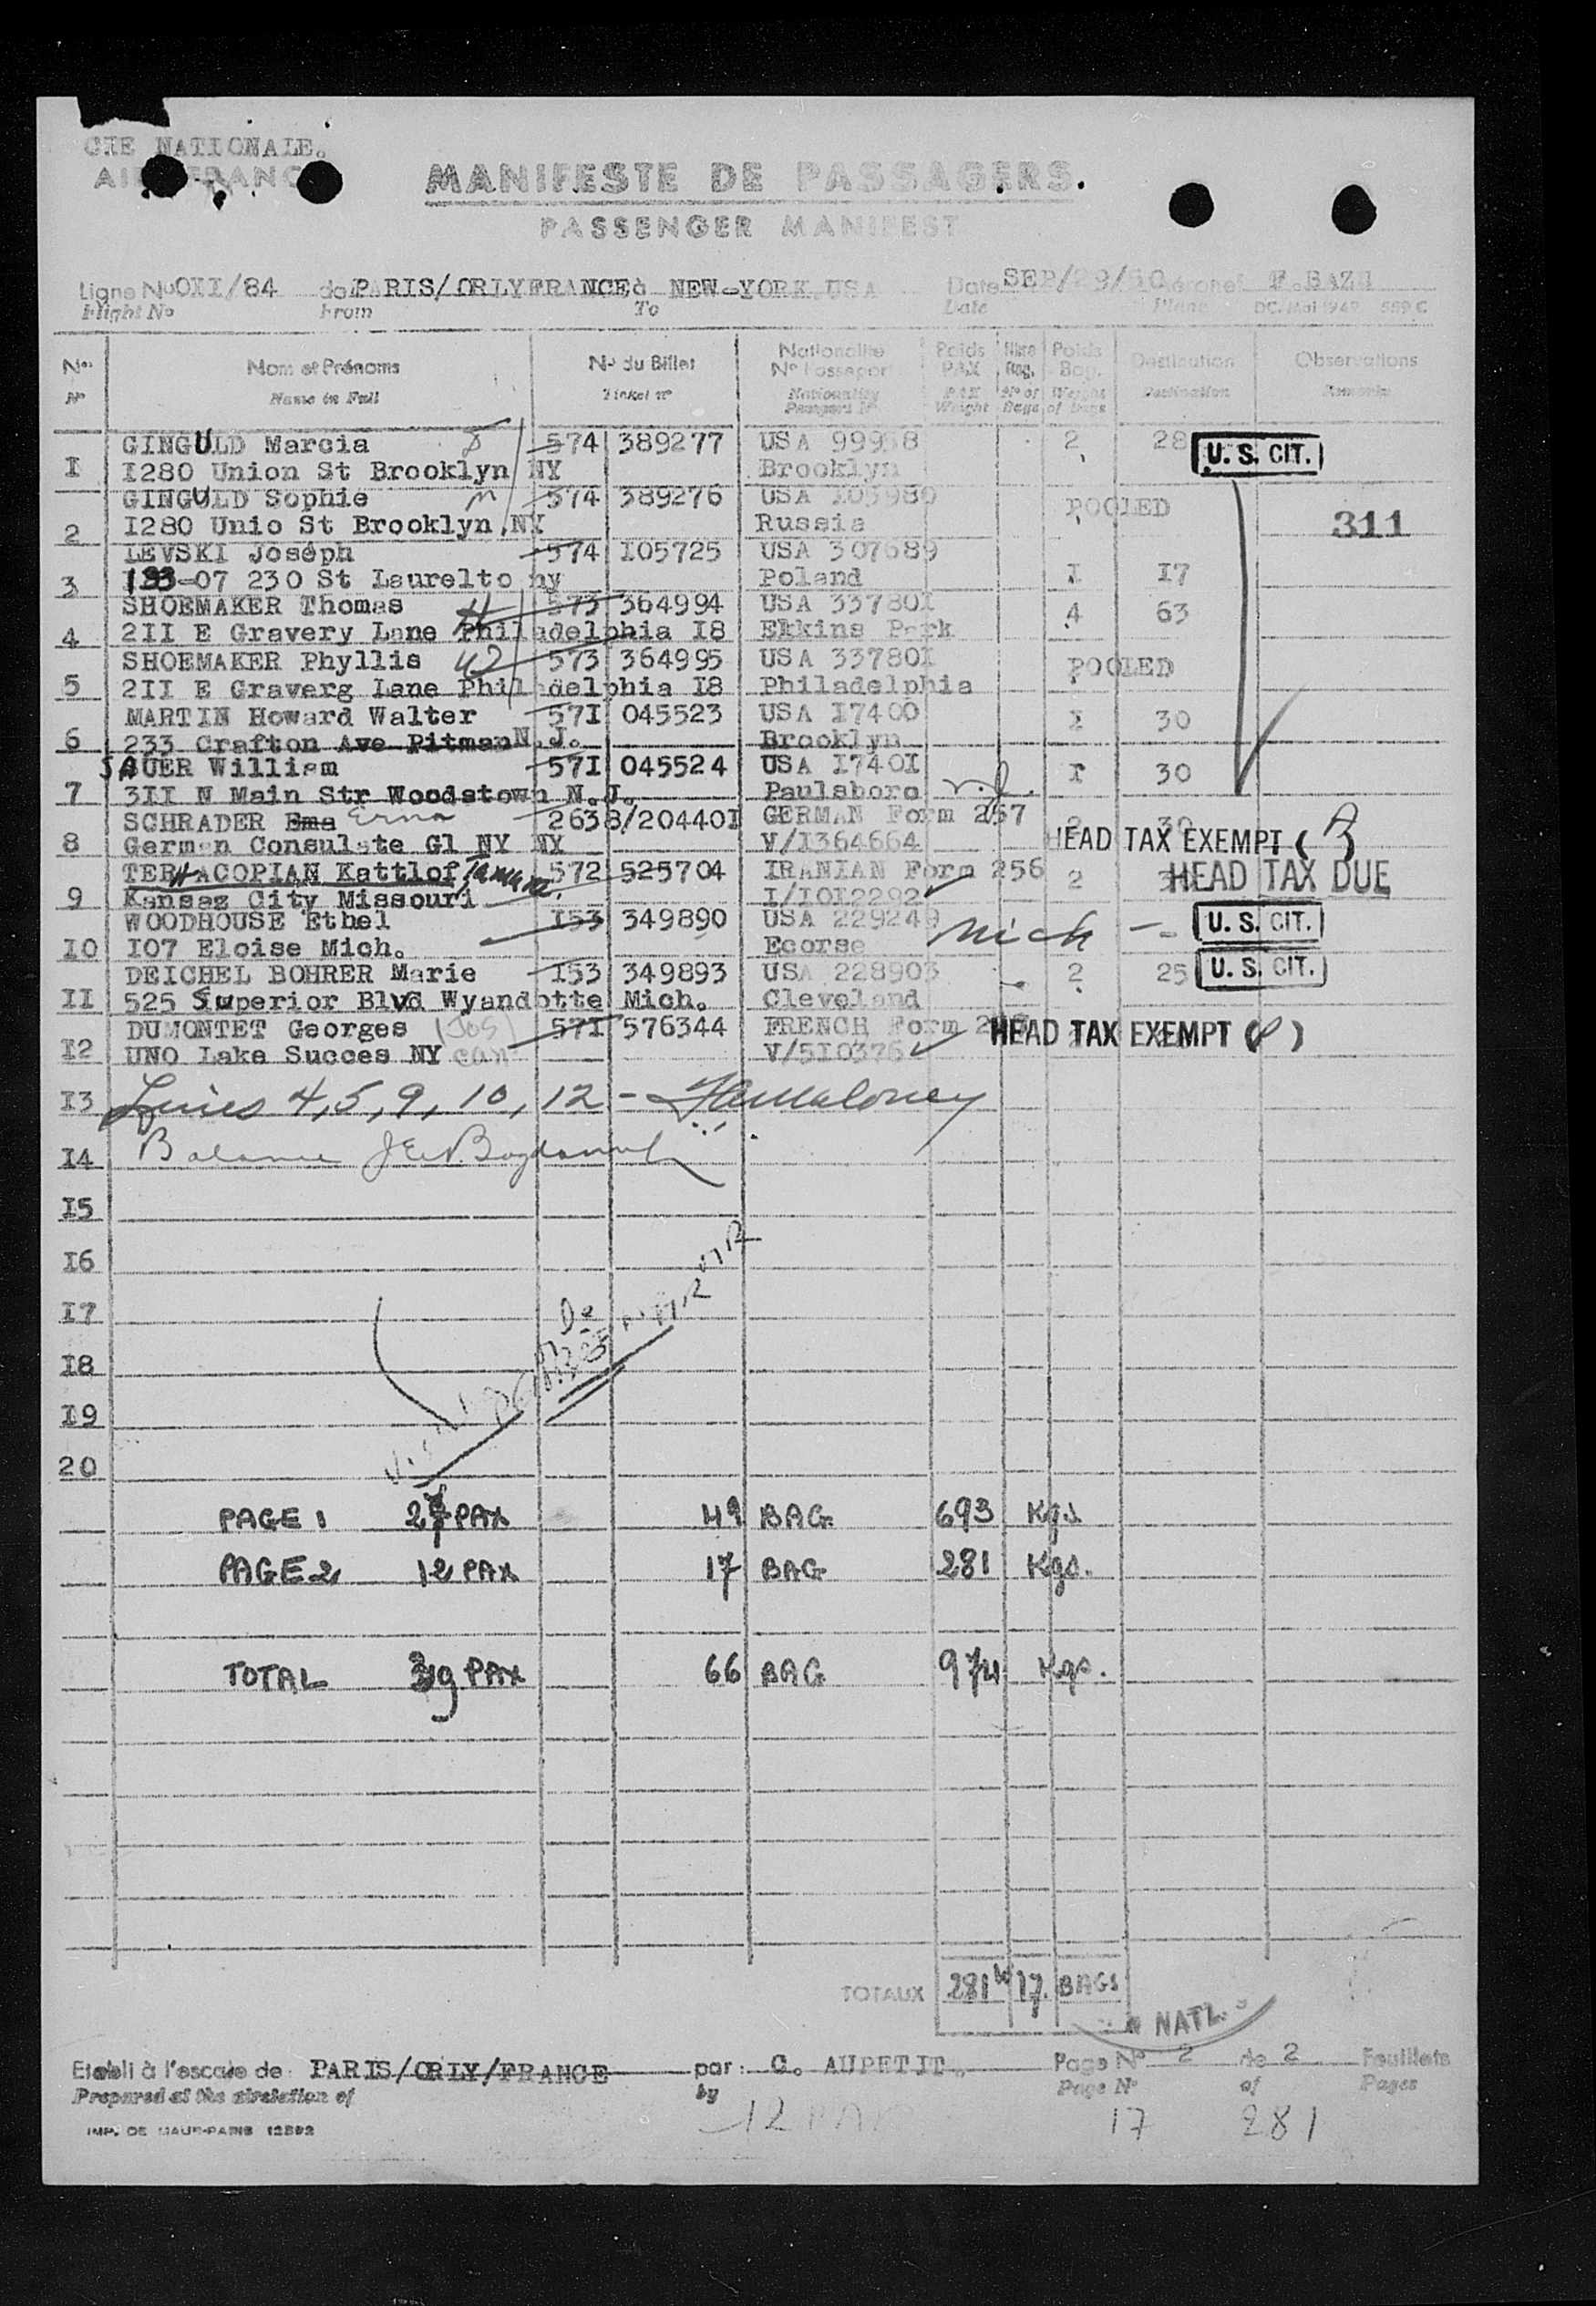 CIE NATIONALE.
AIR FRANCE
MANIFESTE DE PASSAGERS.
PASSENGER MANIFEST
Ligne No OII/84 de PARIS/ORLY FRANCE à NEW-YORK.USA Date SEP/29/50 Aéronef F.BAZH
Flight No From To Date Plane DC. Mai 1949 559 C
Nos Nom et Prénoms No du Billet Nationalité No Passeport Poids PAX Nbre Bag. Poids Bag. Destination Observations
No Name in Full Ticket no Nationality Passport No PAX Weight No of Bags Weight of bags Destination Remarks
GINGULD Marcia 574 389277 USA 2 28 U. S. CIT.
I I280 Union St Brooklyn NY Brooklyn
GINGULD Sophie 574 389276 USA POOLED
2 I280 Unio St Brooklyn,NY Russia 311
LEVSKI Joséph 574 I05725 USA 307689
3 133-07 230 St Laurelto ny Poland I I7
SHOEMAKER Thomas H 573 364994 USA 33780I 4 63
4 2II E Gravery Lane Philadelphia I8 Elkins Park
SHOEMAKER Phyllis W 573 364995 USA 33780I POOLED
5 2II E Graverg Lane Philadelphia I8 Philadelphia
MARTIN Howard Walter 57I 045523 USA I7400 I 30
6 233 Crafton Ave Pitman N.J. Brooklyn
SAUER William 57I 045524 USA I740I I 30
7 3II N Main Str Woodstown N.J. Paulsboro
SCHRADER Ema Erna 2638/20440I GERMAN Form 257
8 German Consulate Gl NY NY V/I364664 HEAD TAX EXEMPT ( )
TERHACOPIAN Kattlof Tamara 572 525704 IRANIAN Form 256 2 HEAD TAX DUE
9 Kansas City Missouri I/IOI2292
WOODHOUSE Ethel I53 349890 USA 229249 Mich - U. S. CIT.
IO IO7 Eloise Mich. Ecorse
DEICHEL BOHRER Marie I53 349893 USA 228903 2 25 U. S. CIT.
II 525 Superior Blvd Wyandotte Mich. Cleveland
DUMONTET Georges (Jos) 57I 576344 FRENCH Form HEAD TAX EXEMPT ( )
I2 UNO Lake Succes NY V/5I0376
I3 Lines 4, 5, 9, 10, 12 - Maloney
I4 Balance
I5
I6
I7
I8
I9
20
PAGE 1 27 PAX 49 BAG 693 Kgs
PAGE 2 12 PAX 17 BAG 281 Kgs.
TOTAL 39 PAX 66 BAG 974 Kgs.
TOTAUX 281 17 BAGS
NATL.
Etabli à l'escale de PARIS/ORLY/FRANCE par: C. AUPETIT. Page No 2 de 2 Feuillets
Prepared at the station of by Page No of Pages
12 PAX 17 281
IMP. DE MAUR-PARIS 12592